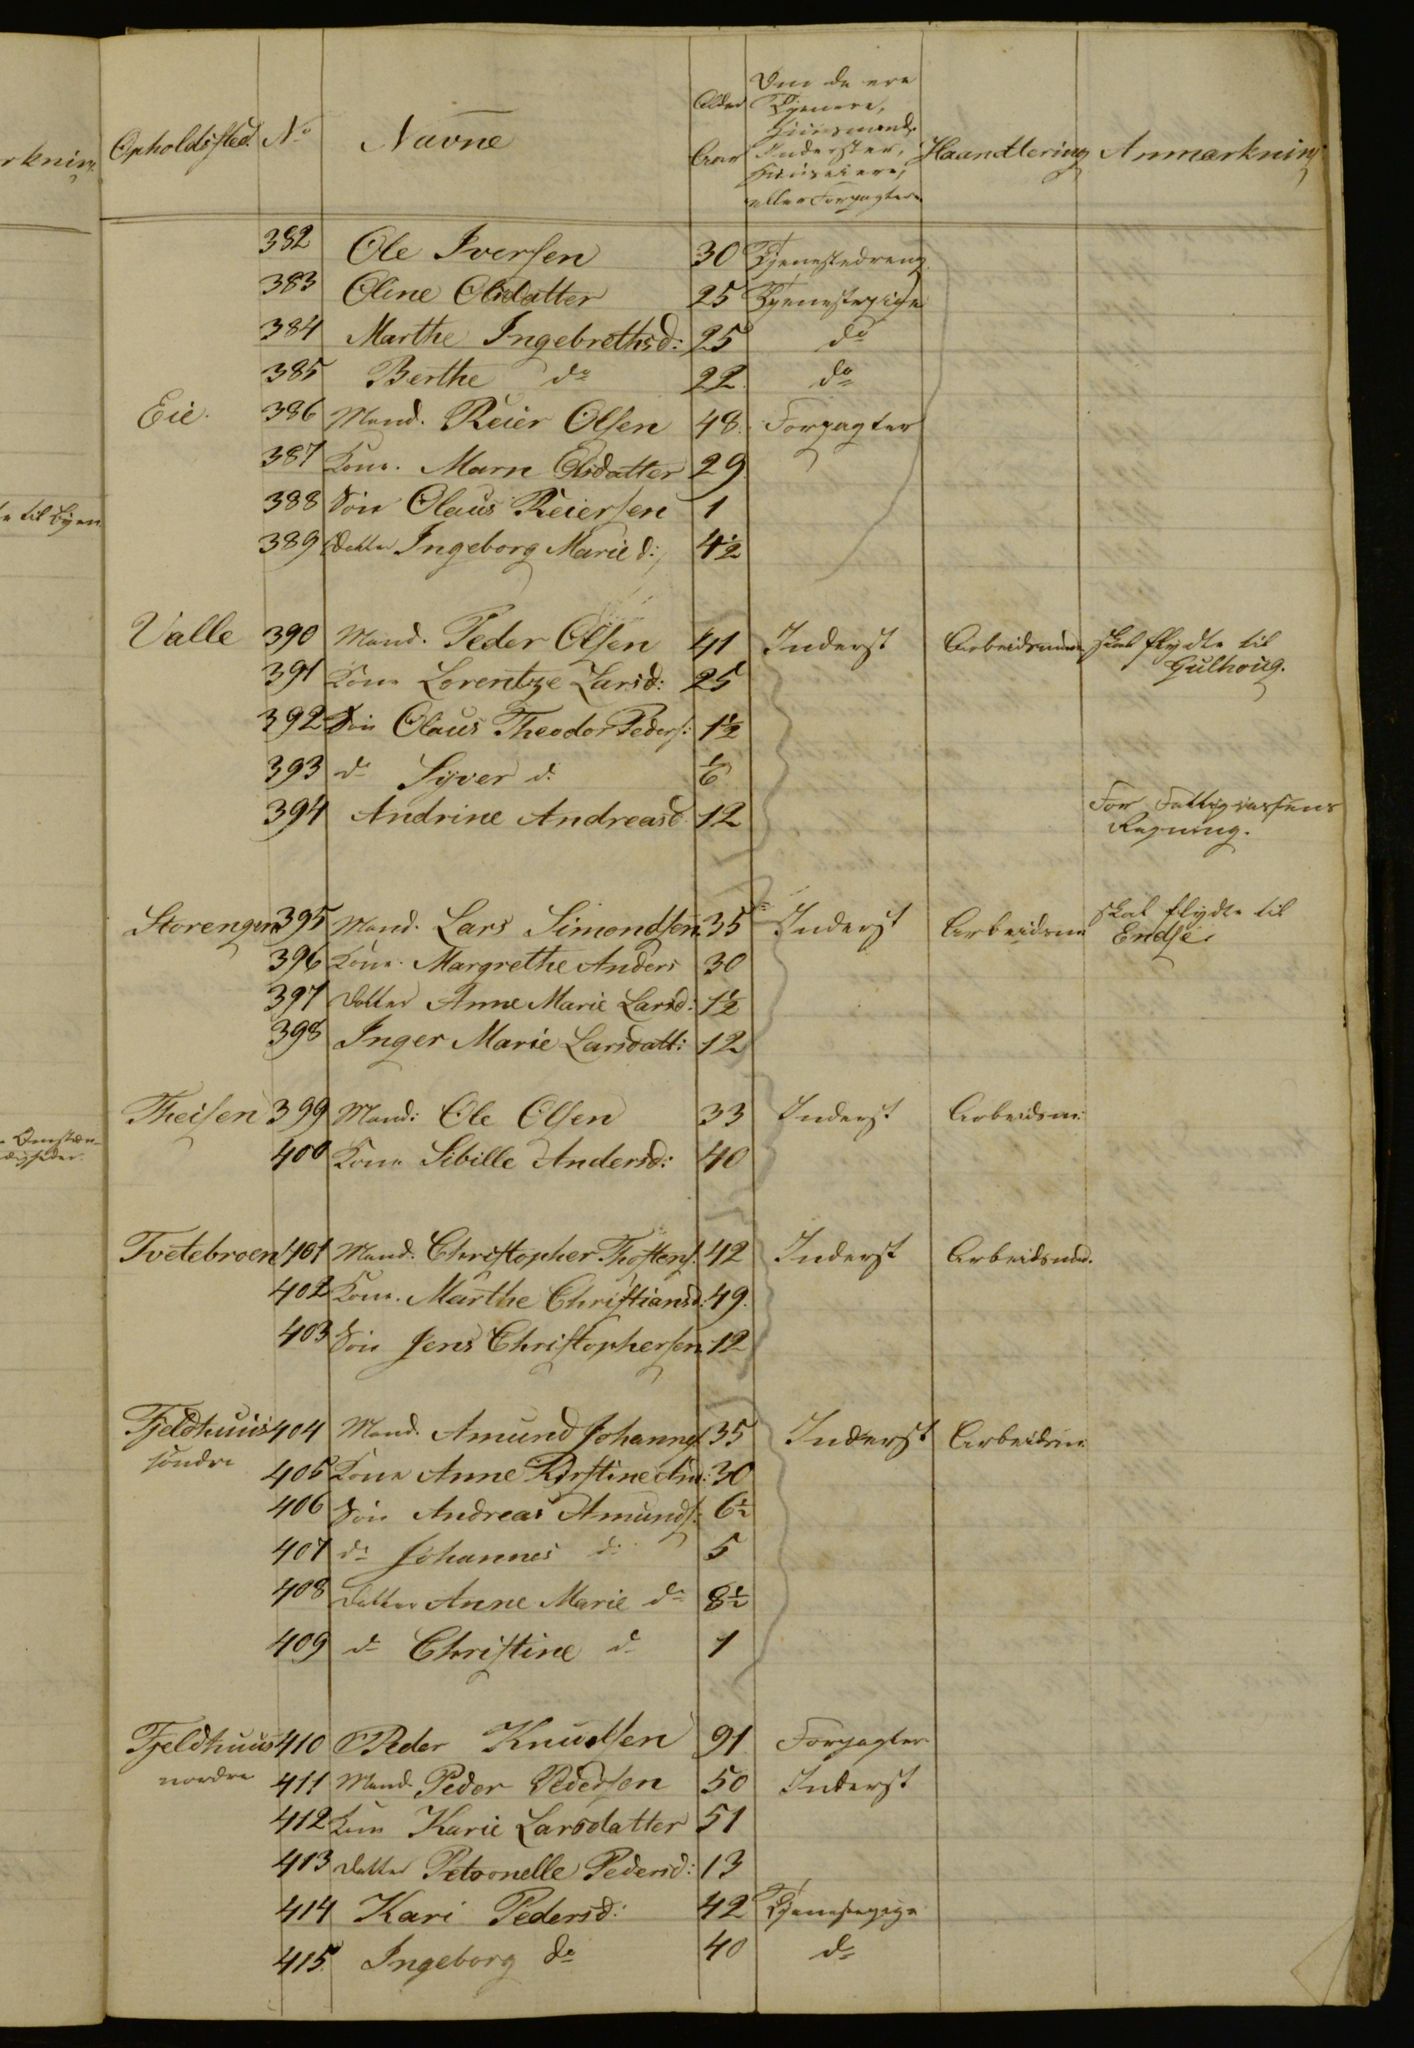 Opholdssted. No Navne Alder Aar Om de ere Tjenere, Huusmænd, Inderster, Huuseiere, eller Forpagtere Haandtering Anmærkning
382 Ole Iversen 30 Tjenestedreng
383 Oline Olsdatter 25 Tjenestepige
384 Marthe Ingebrethsd: 25 do
385 Berthe do 22 do
Eie. 386 Mand. Reier Olsen 48. Forpagter
387 Kone. Marn Olsdatter 29
388 Søn Olaus Reiersen 1
389 Datter Ingeborg Marie d: 4½
Valle 390 Mand. Peder Olsen 41 Inderst Arbeidsmand skal flydte til
Gulhoug.
391 Kone Lorentze Larsd: 25
392 Søn Olaus Theodor Peders: 1½
393 do Syver d. ⅙
394 Andrine Andreasd 12 For Fattigvæsens
Regning.
Storengen 395 Mand. Lars Simondsen 35 Inderst Arbeidsm skal flydte til
Endse.
396 Kone. Margrethe Anders 30
397 Datter Anne Marie Larsd: 1½
398 Inger Marie Larsdatt: 12
Theisen 399 Mand: Ole Olsen 33 Inderst Arbeidsm:
400 Kone Sibille Andersd: 40
Tvetebroen 401 Mand. Christopher Thostens. 42 Inderst Arbeidsmd.
402 Kone. Marthe Christiansd: 49.
403 Søn Jens Christophersen 12
Fjeldhuus 404 Mand. Amund Johannes 35 Inderst Arbeidsm
søndre
405 Kone Anne Kirstine And: 30
406 Søn Andreas Amunds: 6½
407 do Johannes do 5
408 Datter Anne Marie do 8½
409 do Christine do 1
Fjeldhuus 410 Peder Knudsen 91 Forpagter
nordre
411 Mand Peder Pedersen 50 Inderst
412 Kone Karie Larsdatter 51
413 Datter Petronelle Pedersd: 13
414 Kari Pedersd: 42 Tjenestepige
415. Ingeborg do 40 do